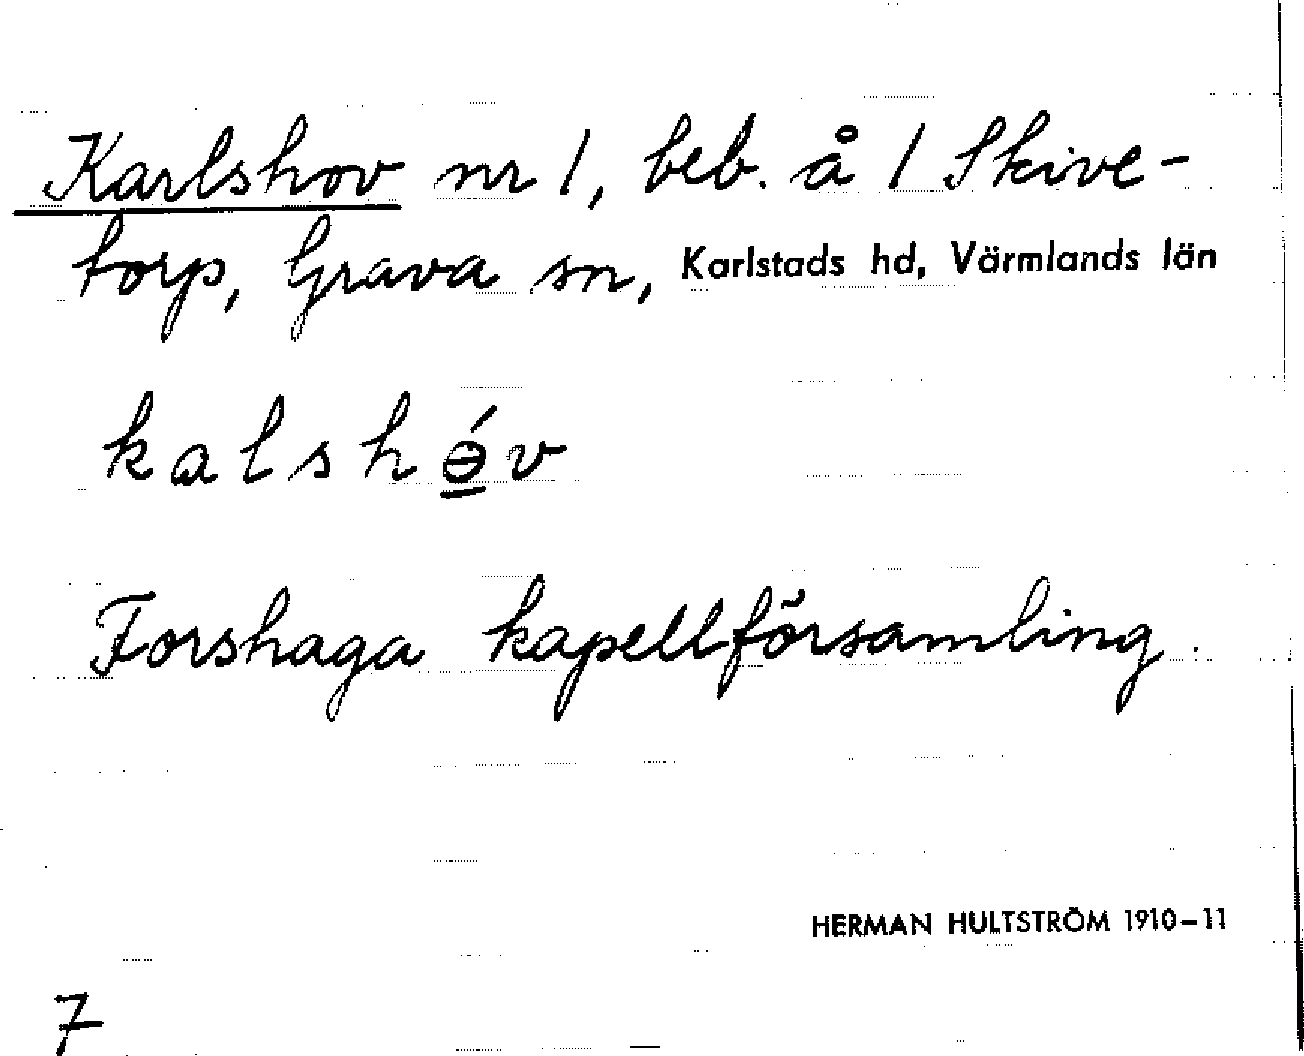 Karlshov nr 1, beb. å 1 Skive-
torp, Grava sn, Karlstads hd, Värmlands län
kalshə́v
Forshaga kapellförsamling.
HERMAN HULTSTRÖM 1910-11
7